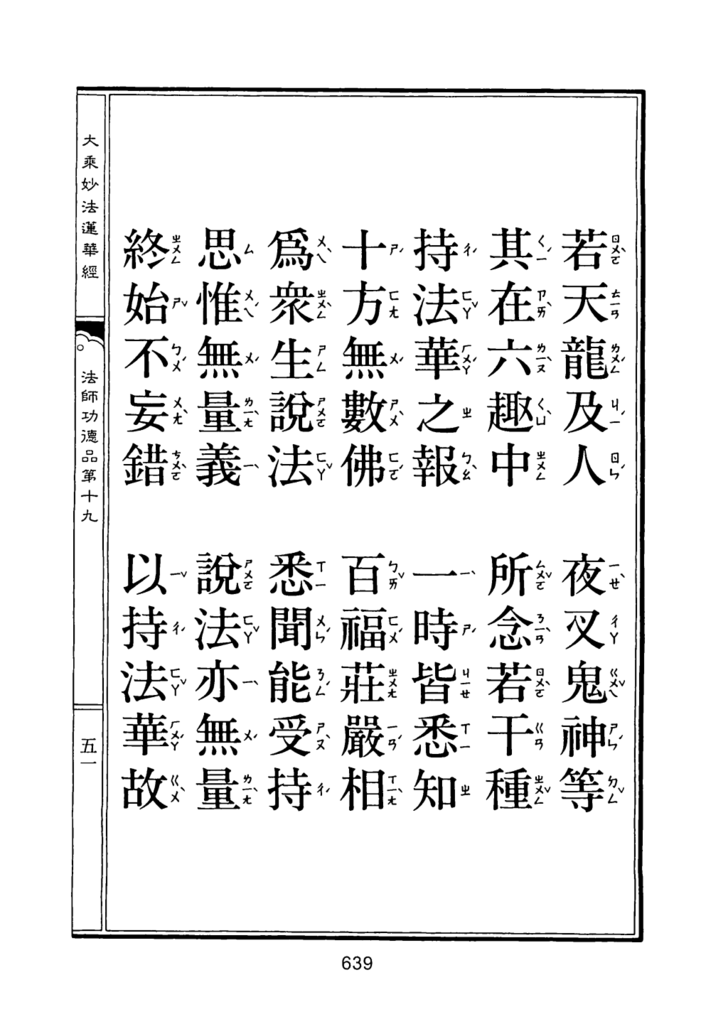 若天龍及人　夜叉鬼神等
其在六趣中　所念若干種
持法華之報　一時皆悉知
十方無數佛　百福莊嚴相
為眾生說法　悉聞能受持
思惟無量義　說法亦無量
終始不妄錯　以持法華故
大乘妙法蓮華經
法師功德品第十九
五一
639